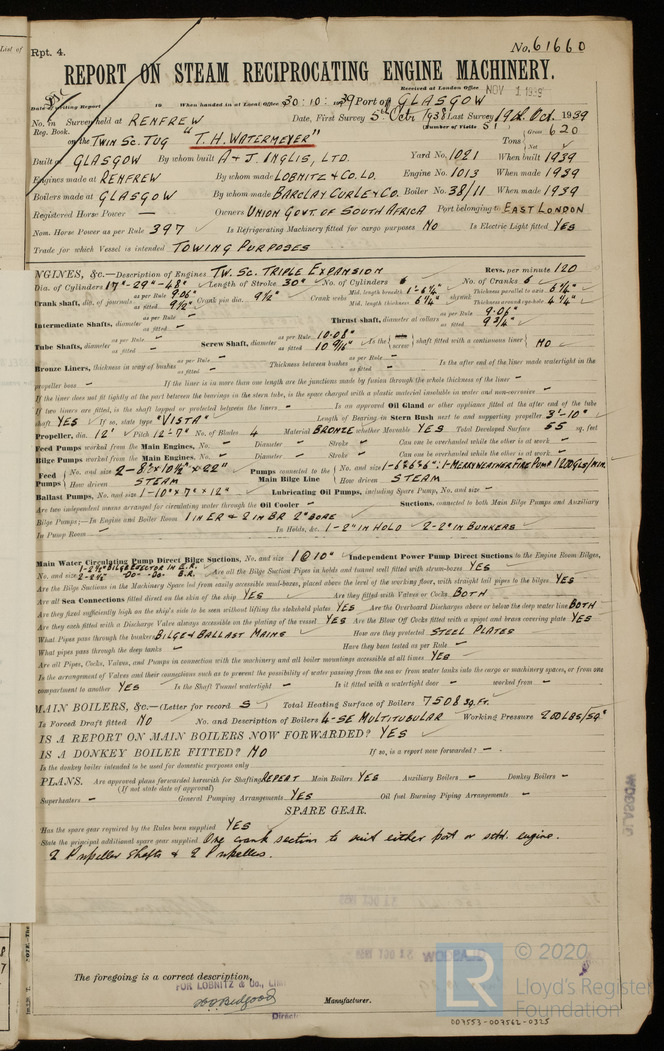 List of
Rpt. 4.
No. 61660
REPORT ON STEAM RECIPROCATING ENGINE MACHINERY.
Received at London Office NOV 1 1939
Date of writing Report 19 When handed in at Local Office 30.10.1939 Port of GLASGOW
No. in Survey held at RENFREW Date, First Survey 5th Oct 1938 Last Survey 19th Oct. 1939
Reg. Book. (Number of Visits 51)
on the TWIN SC. TUG "T. H. WATERMEYER" Tons { Gross 620
Net
Built at GLASGOW By whom built A & J. INGLIS, LTD. Yard No. 1021 When built 1939
Engines made at RENFREW By whom made LOBNITZ & CO. LD. Engine No. 1013 When made 1939
Boilers made at GLASGOW By whom made BARCLAY CURLE & CO. Boiler No. 38/11 When made 1939
Registered Horse Power — Owners UNION GOVT. OF SOUTH AFRICA Port belonging to EAST LONDON
Nom. Horse Power as per Rule 397 Is Refrigerating Machinery fitted for cargo purposes NO Is Electric Light fitted YES
Trade for which Vessel is intended TOWING PURPOSES
ENGINES, &c.—Description of Engines TW. SC. TRIPLE EXPANSION Revs. per minute 120
Dia. of Cylinders 17"-29"-48" Length of Stroke 30" No. of Cylinders 6 No. of Cranks 6
Crank shaft, dia. of journals as per Rule 9.06" as fitted 9½" Crank pin dia. 9½" Crank webs Mid. length breadth 1'-6¼" Mid. length thickness 6¼" shrunk Thickness parallel to axis 6¼" Thickness around eye-hole 4¼"
Intermediate Shafts, diameter as per Rule — as fitted — Thrust shaft, diameter at collars as per Rule 9.06" as fitted 9¾"
Tube Shafts, diameter as per Rule — as fitted — Screw Shaft, diameter as per Rule 10.08" as fitted 10 9/16" Is the { screw } shaft fitted with a continuous liner { NO
Bronze Liners, thickness in way of bushes as per Rule — as fitted — Thickness between bushes as per Rule — as fitted — Is the after end of the liner made watertight in the
propeller boss — If the liner is in more than one length are the junctions made by fusion through the whole thickness of the liner —
If the liner does not fit tightly at the part between the bearings in the stern tube, is the space charged with a plastic material insoluble in water and non-corrosive —
If two liners are fitted, is the shaft lapped or protected between the liners — Is an approved Oil Gland or other appliance fitted at the after end of the tube
shaft YES If so, state type "VISTA" Length of Bearing in Stern Bush next to and supporting propeller 3'-10"
Propeller, dia. 12' Pitch 12'-7" No. of Blades 4 Material BRONZE whether Moveable YES Total Developed Surface 55 sq. feet
Feed Pumps worked from the Main Engines, No. — Diameter — Stroke — Can one be overhauled while the other is at work —
Bilge Pumps worked from the Main Engines, No. — Diameter — Stroke — Can one be overhauled while the other is at work —
Feed Pumps { No. and size 2-8"x10½"x22" Pumps connected to the Main Bilge Line { No. and size 1-6"x6"x6": 1-MERRYWEATHER FIRE PUMP 1200 GLS/MIN.
How driven STEAM How driven STEAM
Ballast Pumps, No. and size 1-10"x7"x12" Lubricating Oil Pumps, including Spare Pump, No. and size —
Are two independent means arranged for circulating water through the Oil Cooler — Suctions, connected to both Main Bilge Pumps and Auxiliary
Bilge Pumps;—In Engine and Boiler Room 1 IN ER & 2 IN BR 2" BORE
In Pump Room — In Holds, &c. 1-2" IN HOLD 2-2" IN BUNKERS
Main Water Circulating Pump Direct Bilge Suctions, No. and size 1@10" Independent Power Pump Direct Suctions to the Engine Room Bilges,
No. and size 1-2½" BILGE EJECTOR IN E.R. 2-2½" -DO- -DO- B.R. Are all the Bilge Suction Pipes in holds and tunnel well fitted with strum-boxes YES
Are the Bilge Suctions in the Machinery Space led from easily accessible mud-boxes, placed above the level of the working floor, with straight tail pipes to the bilges YES
Are all Sea Connections fitted direct on the skin of the ship YES Are they fitted with Valves or Cocks BOTH
Are they fixed sufficiently high on the ship's side to be seen without lifting the stokehold plates YES Are the Overboard Discharges above or below the deep water line BOTH
Are they each fitted with a Discharge Valve always accessible on the plating of the vessel YES Are the Blow Off Cocks fitted with a spigot and brass covering plate YES
What Pipes pass through the bunkers BILGE & BALLAST MAINS How are they protected STEEL PLATES
What pipes pass through the deep tanks — Have they been tested as per Rule —
Are all Pipes, Cocks, Valves, and Pumps in connection with the machinery and all boiler mountings accessible at all times YES
Is the arrangement of Valves and their connections such as to prevent the possibility of water passing from the sea or from water tanks into the cargo or machinery spaces, or from one
compartment to another YES Is the Shaft Tunnel watertight — Is it fitted with a watertight door — worked from —
MAIN BOILERS, &c.—(Letter for record S) Total Heating Surface of Boilers 7508 SQ. FT.
Is Forced Draft fitted NO No. and Description of Boilers 4-SE MULTITUBULAR Working Pressure 200 LBS/SQ."
IS A REPORT ON MAIN BOILERS NOW FORWARDED? YES
IS A DONKEY BOILER FITTED? NO If so, is a report now forwarded? —
Is the donkey boiler intended to be used for domestic purposes only —
PLANS. Are approved plans forwarded herewith for Shafting REPEAT Main Boilers YES Auxiliary Boilers — Donkey Boilers —
(If not state date of approval)
Superheaters — General Pumping Arrangements YES Oil fuel Burning Piping Arrangements —
SPARE GEAR.
Has the spare gear required by the Rules been supplied YES
State the principal additional spare gear supplied One crank section to suit either port or stbd. engine.
2 Propeller Shafts & 2 Propellers.
The foregoing is a correct description,
FOR LOBNITZ & Co.,
Manufacturer.
© 2020
LR
Lloyd's Register
Foundation
007553-007562-0325